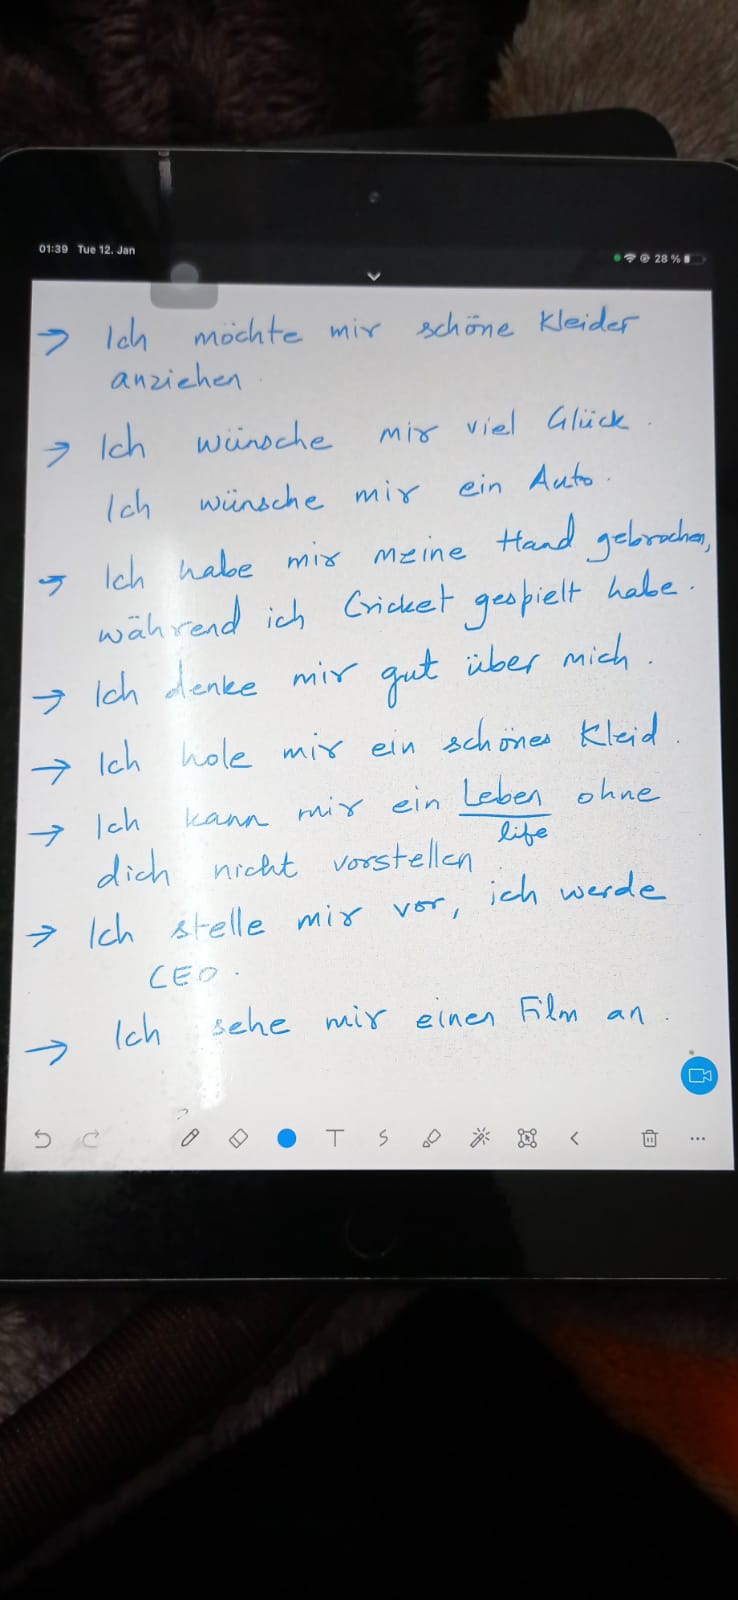 01:39 Tue 12. Jan
28 %
→ Ich möchte mir schöne Kleider
anziehen.
→ Ich wünsche mir viel Glück.
Ich wünsche mir ein Auto.
→ Ich habe mir meine Hand gebrochen,
während ich Cricket gespielt habe.
→ Ich denke mir gut über mich.
→ Ich hole mir ein schönes Kleid.
→ Ich kann mir ein Leben ohne
life
dich nicht vorstellen
→ Ich stelle mir vor, ich werde
CEO.
→ Ich sehe mir einen Film an.
T